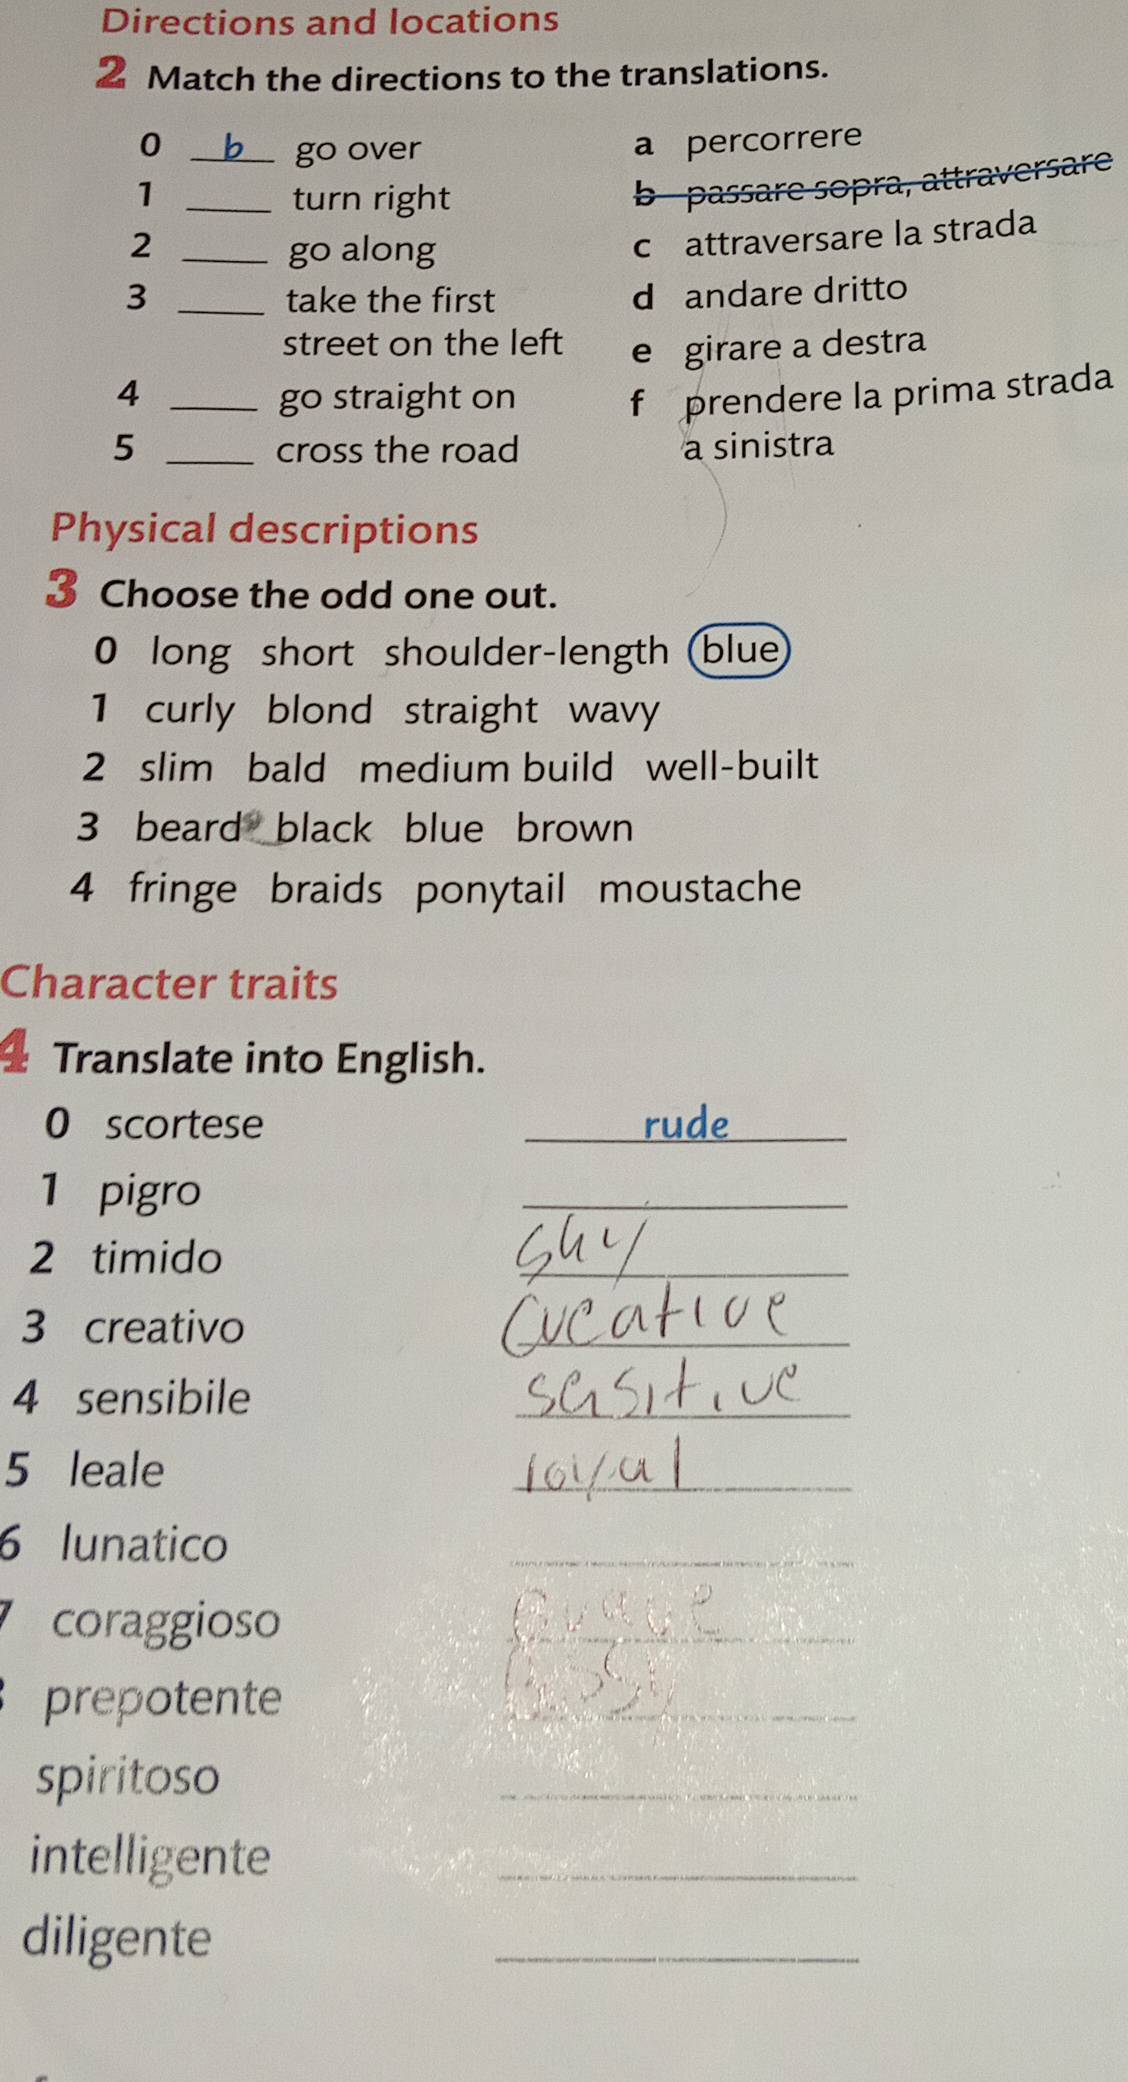 Directions and locations
2 Match the directions to the translations.
0 b go over
1 ____ turn right
2 ____ go along
3 ____ take the first
street on the left
4 ____ go straight on
5 ____ cross the road
a percorrere
b passare sopra, attraversare
c attraversare la strada
d andare dritto
e girare a destra
f prendere la prima strada
a sinistra
Physical descriptions
3 Choose the odd one out.
0 long short shoulder-length blue
1 curly blond straight wavy
2 slim bald medium build well-built
3 beard black blue brown
4 fringe braids ponytail moustache
Character traits
4 Translate into English.
0 scortese rude
1 pigro
2 timido shy
3 creativo creative
4 sensibile sensitive
5 leale loyal
6 lunatico
7 coraggioso brave
prepotente
spiritoso
intelligente
diligente